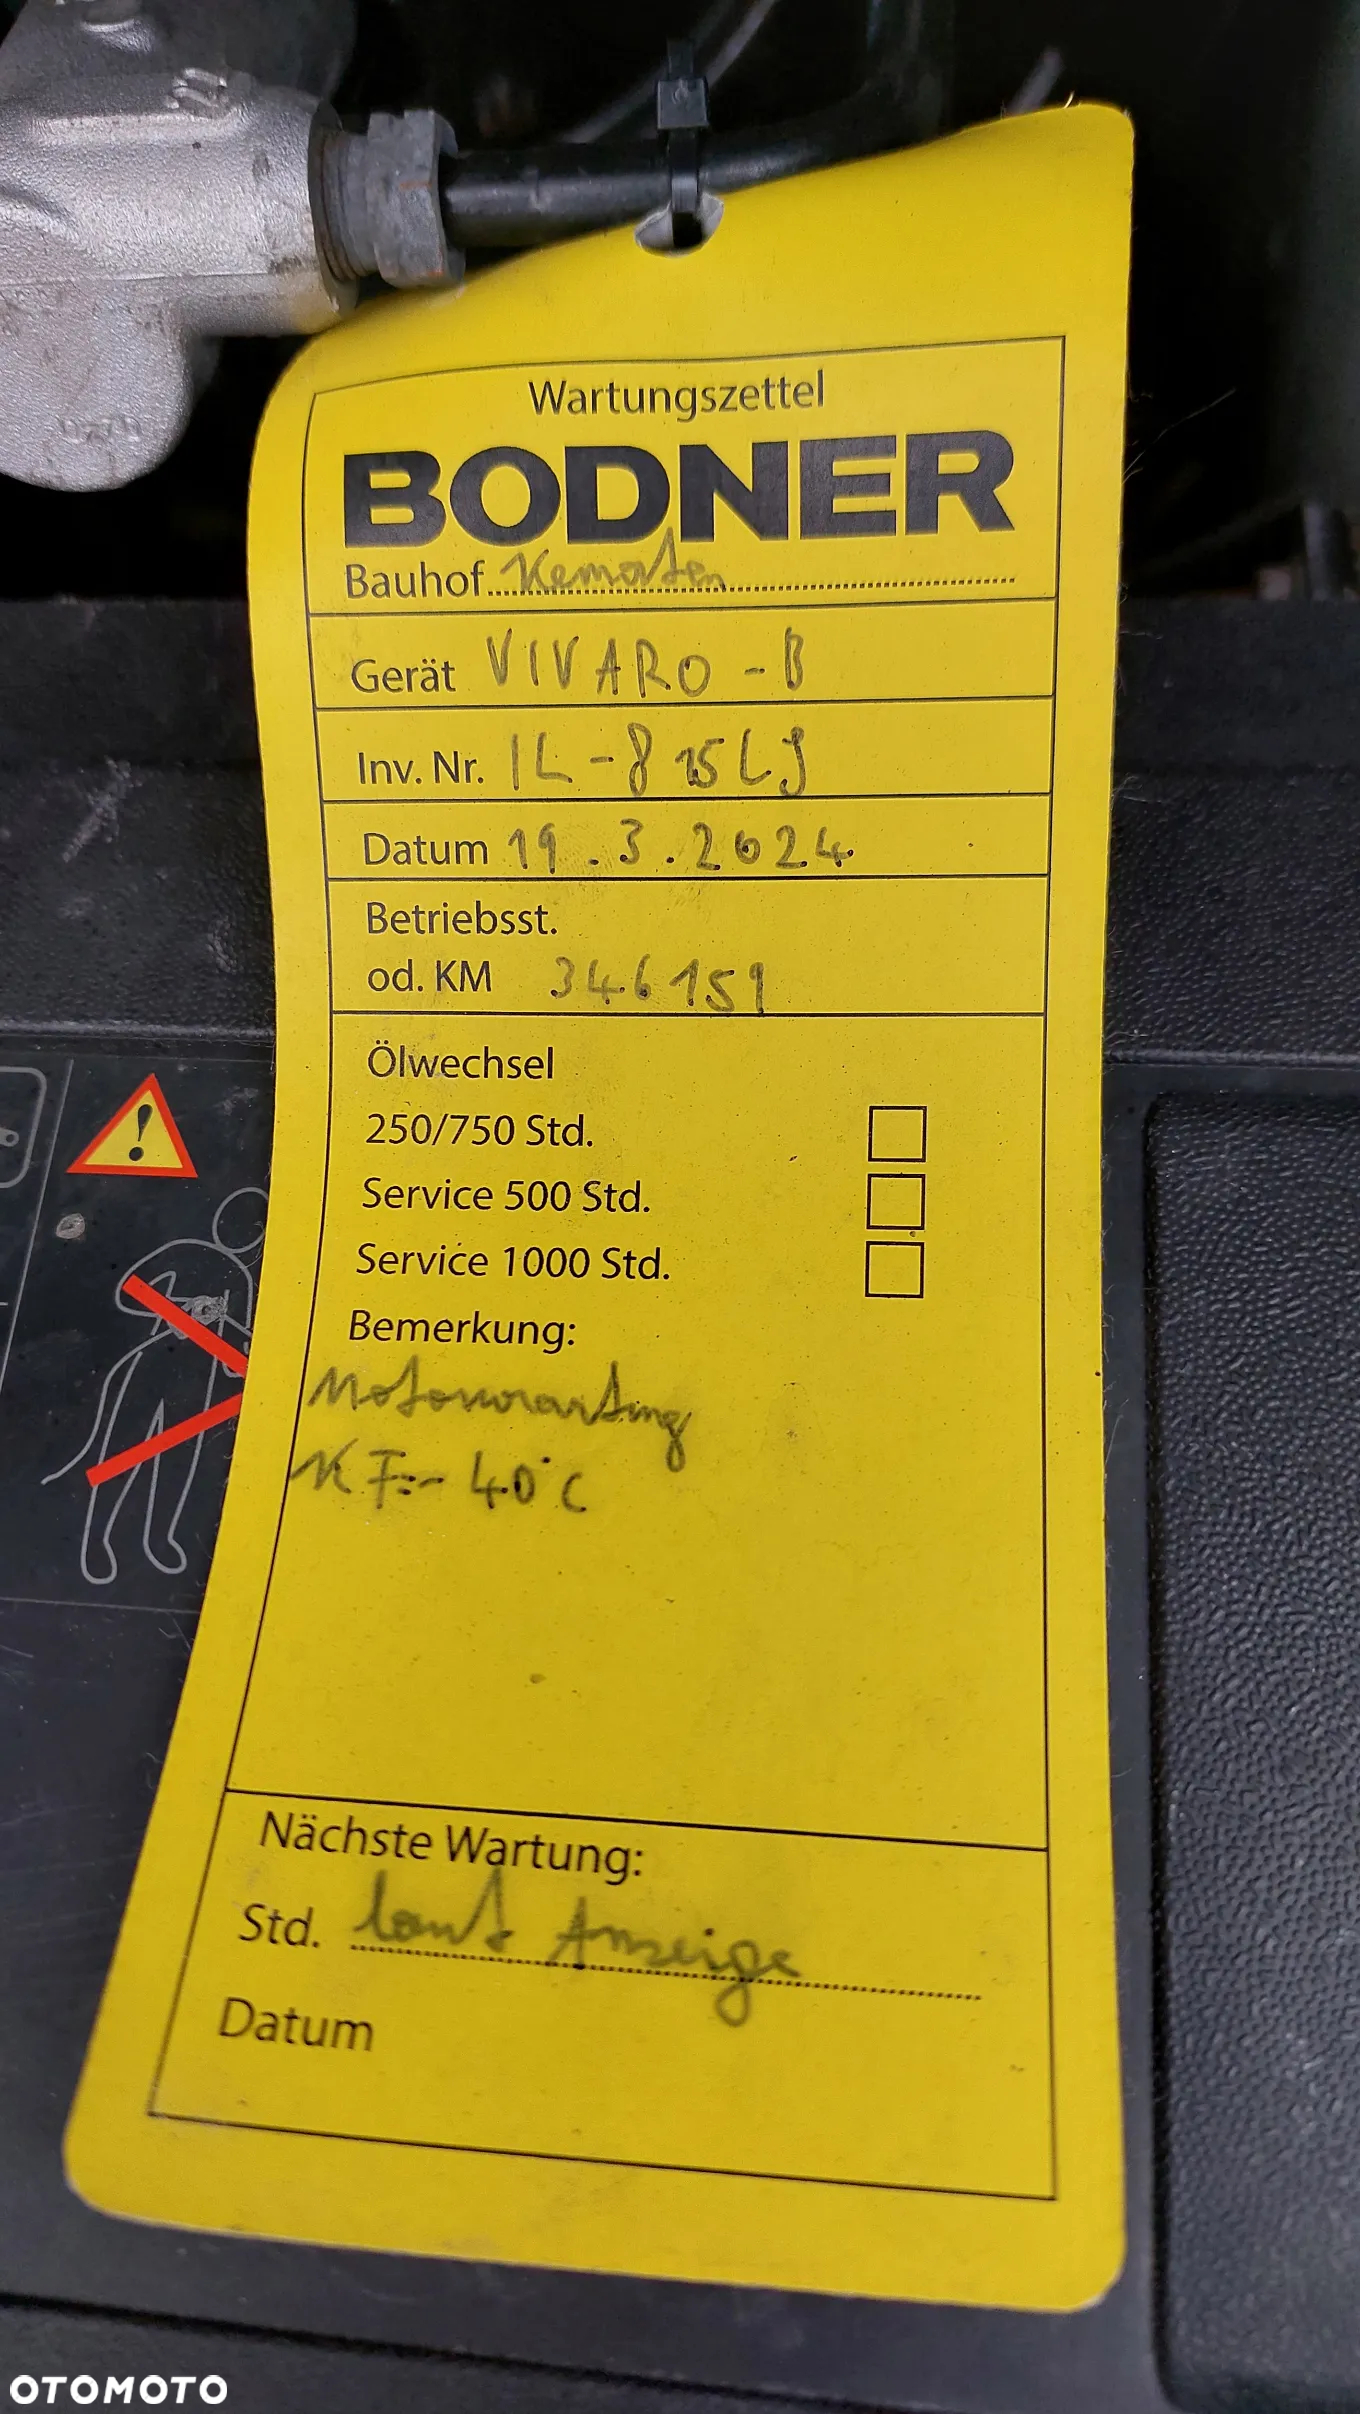 Wartungszettel
BODNER
Bauhof Kematen
Gerät VIVARO-B
Inv. Nr. IL-815LJ
Datum 19.3.2024
Betriebsst.
od. KM 346151
Ölwechsel
250/750 Std.
Service 500 Std.
Service 1000 Std.
Bemerkung:
Motorwartung
KF:-40°C
Nächste Wartung:
Std. laut Anzeige
Datum
OTOMOTO